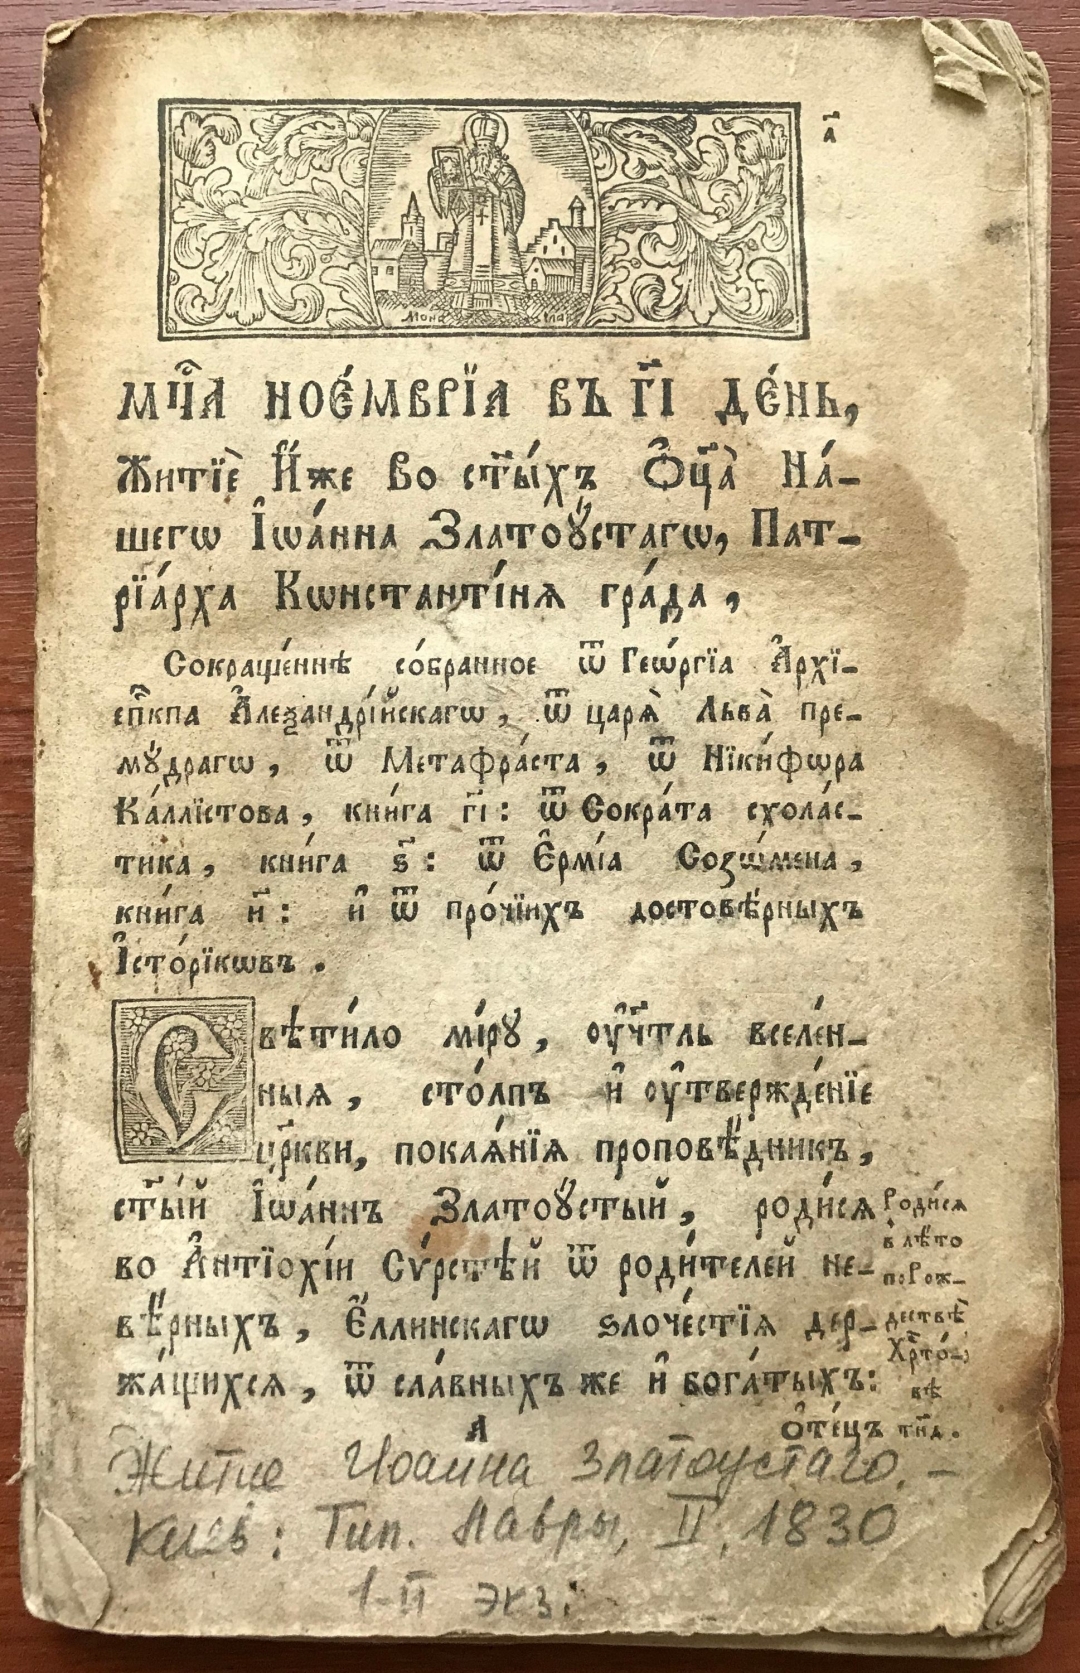 а҃
Мона
мцⷭ҇а ноемврїа въ г҃і де́нь,
Житїѐ И҆́же во ст҃ы́хъ Ѻ҆ц҃а̀ На́-
шегѡ І҆ѡа́нна Златоꙋ́стагѡ, Пат-
рїа́рха Кѡнстанті́нѧ гра́да ,
Сокраще́ннѣ со́бранное ѿ Геѡ́ргїа А҆рхї-
епⷭ҇кпа А҆леѯандрі́йскагѡ , ѿ царѧ̀ Льва̀ пре-
мꙋ́драгѡ , ѿ Метафра́ста , ѿ Нїки́фѡра
Ка́ллїстова , кни́га г҃і : ѿ Сокра́та схола́с-
тика , кни́га ѕ҃ : ѿ Е҆рмі́а Созѡ́мена ,
кни́га и҃ : и҆ ѿ про́чїихъ достовѣ́рныхъ
І҆сто́рїкѡвъ .
Свѣти́ло мі́рꙋ , оу҆чт҃ль вселе́н-
ныѧ , сто́лпъ и҆ оу҆твержде́нїе
цр҃кви, покаѧ́нїѧ проповѣ́дникъ ,
ст҃ы́й І҆ѡа́ннъ Златоꙋ́стый , роди́сѧ
во А҆нтїохі́и Сѵ́рстѣй ѿ роди́телей не-
вѣ́рныхъ , Е҆́ллинскагѡ ѕлоче́стїѧ дер-
жа́щихсѧ , ѿ сла́вныхъ же и҆ бога́тыхъ :
Роди́сѧ
в̾ лѣ́то
по Рож-
дествѣ̀
Хрⷭ҇то́-
вѣ
тн҃д .
А
Ѻ҆те́цъ
Житие Иоанна Златоустаго. –
Киев : Тип. Лавры, II, 1830
1-й экз.